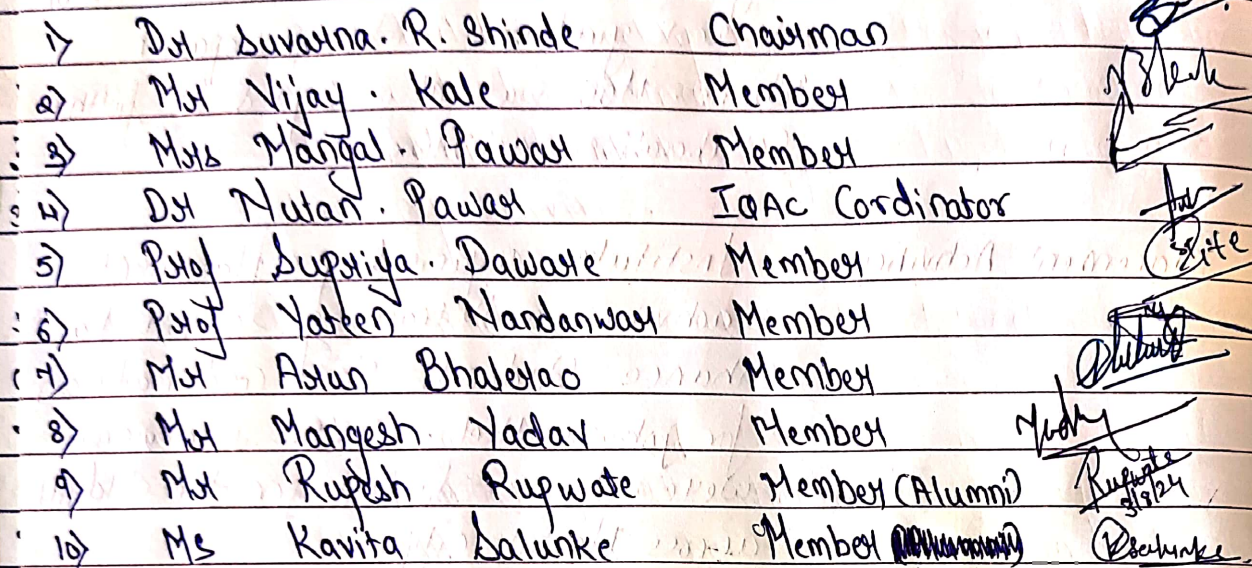 1) Dr Suvarna. R. Shinde Chairman
2) Mr Vijay. Kale Member
3) Mrs Mangal. Pawar Member
4) Dr Nutan. Pawar IQAC Cordinator
5) Prof Supriya. Daware Member
6) Prof Yateen Nandanwar Member
7) Mr Arun Bhalerao Member
8) Mr Mangesh Yadav Member
9) Mr Rupesh Rupwate Member (Alumni) Rupwate 3/8/24
10) Ms Kavita Salunke Member